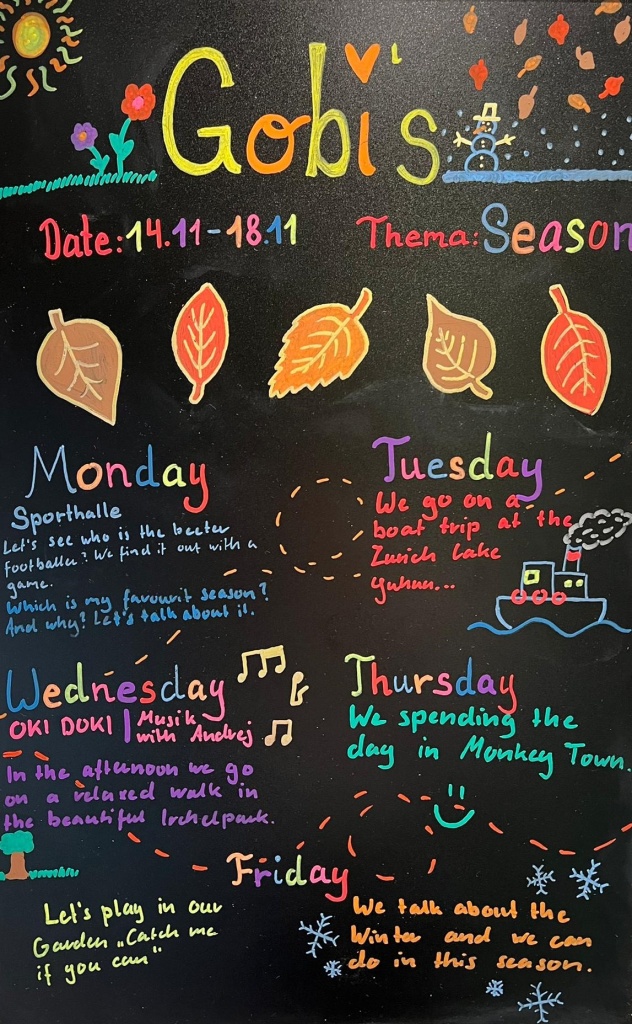 Gobi's
Date: 14.11-18.11
Thema: Season
Monday
Sporthalle
Let's see who is the beeter
footballer? We find it out with a
game.
Which is my favourit season?
And why? Let's talk about it.
Tuesday
We go on a
boat trip at the
Zurich Lake
Yuhuu...
Wednesday
OKI DOKI | Musik
with Andrej
In the afternoon we go
on a relaxed walk in
the beautiful Irchelpark.
Thursday
We spending the
day in Monkey Town.
Friday
Let's play in our
Garden „Catch me
if you can"
We talk about the
Winter and we can
do in this season.